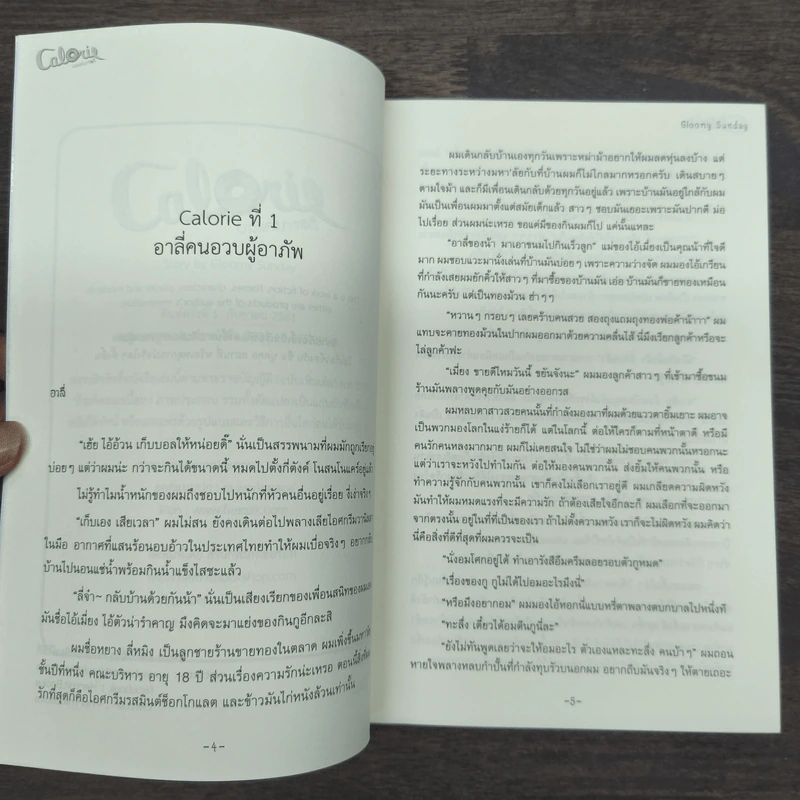 Calorie
Calorie ที่ 1
อาลี่คนอวบผู้อาภัพ
อาลี่
"เฮ้ย ไอ้อ้วน เก็บบอลให้หน่อยดิ๊" นั่นเป็นสรรพนามที่ผมมักถูกเรียกอยู่
บ่อยๆ แต่ว่าผมน่ะ กว่าจะกินได้ขนาดนี้ หมดไปตั้งกี่ตังค์ โนสนโนแคร์อยู่แล้ว
ไม่รู้ทำไมน้ำหนักของผมถึงชอบไปหนักที่หัวคนอื่นอยู่เรื่อย ขี้เล่าจริงๆ
"เก็บเอง เสียเวลา" ผมไม่สน ยังคงเดินต่อไปพลางเลียไอศกรีมวานิลลา
ในมือ อากาศที่แสนร้อนอบอ้าวในประเทศไทยทำให้ผมเบื่อจริงๆ อยากกลับ
บ้านไปนอนแช่น้ำพร้อมกินน้ำแข็งไสซะแล้ว
"ลี่จ๋า~ กลับบ้านด้วยกันน้า" นั่นเป็นเสียงเรียกของเพื่อนสนิทของผมเอง
มันชื่อไอ้เมี่ยง ไอ้ตัวน่ารำคาญ มึงคิดจะมาแย่งของกินกูอีกละสิ
ผมชื่อหยาง ลี่หมิง เป็นลูกชายร้านขายทองในตลาด ผมเพิ่งขึ้นมหา'ลัย
ชั้นปีที่หนึ่ง คณะบริหาร อายุ 18 ปี ส่วนเรื่องความรักน่ะเหรอ ตอนนี้สิ่งที่ผม
รักที่สุดก็คือไอศกรีมรสมินต์ช็อกโกแลต และข้าวมันไก่หนังล้วนเท่านั้น
-4-
Gloomy Sunday
ผมเดินกลับบ้านเองทุกวันเพราะหม่าม้าอยากให้ผมลดหุ่นลงบ้าง แต่
ระยะทางระหว่างมหา'ลัยกับที่บ้านผมก็ไม่ไกลมากหรอกครับ เดินสบายๆ
ตามใจม้า และก็มีเพื่อนเดินกลับด้วยทุกวันอยู่แล้ว เพราะบ้านมันอยู่ใกล้กับผม
มันเป็นเพื่อนผมมาตั้งแต่สมัยเด็กแล้ว สาวๆ ชอบมันเยอะเพราะมันปากดี ม่อ
ไปเรื่อย ส่วนผมน่ะเหรอ ขอแค่มีของกินผมก็ไป แค่นั้นแหละ
"อาลี่ของน้า มาเอาขนมไปกินเร็วลูก" แม่ของไอ้เมี่ยงเป็นคุณน้าที่ใจดี
มาก ผมชอบแวะมานั่งเล่นที่บ้านมันบ่อยๆ เพราะความว่างจัด ผมมองไอ้เกรียน
ที่กำลังเสยผมยักคิ้วให้สาวๆ ที่มาซื้อของบ้านมัน เอ่อ บ้านมันก็ขายทองเหมือน
กันนะครับ แต่เป็นทองม้วน ฮ่าๆๆ
"หวานๆ กรอบๆ เลยคร้าบคนสวย สองถุงแถมถุงทองพ่อค้าน้าาา" ผม
แทบจะคายทองม้วนในปากผมออกมาด้วยความคลื่นไส้ นี่มึงเรียกลูกค้าหรือจะ
ไล่ลูกค้าฟะ
"เมี่ยง ขายดีไหมวันนี้ ขยันจังนะ" ผมมองลูกค้าสาวๆ ที่เข้ามาซื้อขนม
ร้านมันพลางพูดคุยกับมันอย่างออกรส
ผมหลบตาสาวสวยคนนั้นที่กำลังมองมาที่ผมด้วยแววตายิ้มเยาะ ผมอาจ
เป็นพวกมองโลกในแง่ร้ายก็ได้ แต่ในโลกนี้ ต่อให้ใครก็ตามที่หน้าตาดี หรือมี
คนรักคนหลงมากมาย ผมก็ไม่เคยสนใจ ไม่ใช่ว่าผมไม่ชอบคนพวกนั้นหรอกนะ
แต่ว่าเราจะหวังไปทำไมกัน ต่อให้มองคนพวกนั้น ส่งยิ้มให้คนพวกนั้น หรือ
ทำความรู้จักกับคนพวกนั้น เขาก็คงไม่เลือกเราอยู่ดี ผมเกลียดความผิดหวัง
มันทำให้ผมหมดแรงที่จะมีความรัก ถ้าต้องเสียใจอีกละก็ ผมเลือกที่จะออกมา
จากตรงนั้น อยู่ในที่ที่เป็นของเรา ถ้าไม่ตั้งความหวัง เราก็จะไม่ผิดหวัง ผมคิดว่า
นี่คือสิ่งที่ดีที่สุดที่ผมควรจะเป็น
"นั่งอมโศกอยู่ได้ ทำเอารังสีอึมครึมลอยรอบตัวกูหมด"
"เรื่องของกู กูไม่ได้ไปอมอะไรมึงนี่"
"หรือมึงอยากอม" ผมมองไอ้หอกนี่แบบหรี่ตาพลางตบกบาลไปหนึ่งที
"ทะลึ่ง เดี๋ยวได้อมตีนกูนี่ละ"
"ยังไม่ทันพูดเลยว่าจะให้อมอะไร ตัวเองแหละทะลึ่ง คนบ้าๆ" ผมถอน
หายใจพลางหลบกำปั้นที่กำลังทุบรัวบนอกผม อยากถีบมันจริงๆ ให้ตายเถอะ
-5-